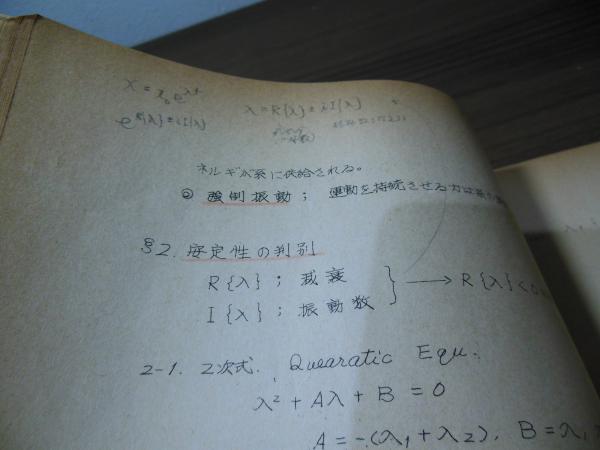 x = x₀e^λt
λ = R{λ} ± iI{λ}
e^R{λ} ± iI{λ}
ネルギが系に供給される。
② 強制振動; 運動を持続させる力は
§2. 安定性の判別
R{λ}; 減衰
I{λ}; 振動数
} → R{λ} <
2-1. 2次式. Quearatic Equ.
λ² + Aλ + B = 0
A = -(λ₁ + λ₂). B = λ₁